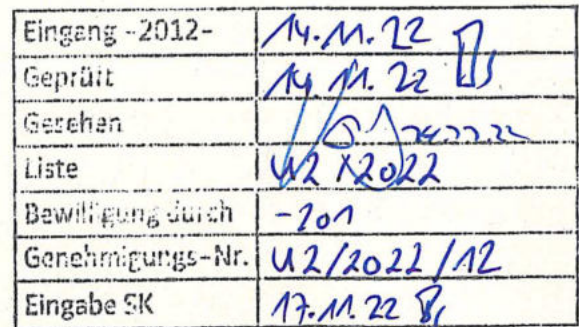 Eingang -2012- 14.11.22
Geprüft 14.11.22
Gesehen
Liste U2 / 2022
Bewilligung durch -201
Genehmigungs-Nr. U2/2022/12
Eingabe SK 17.11.22